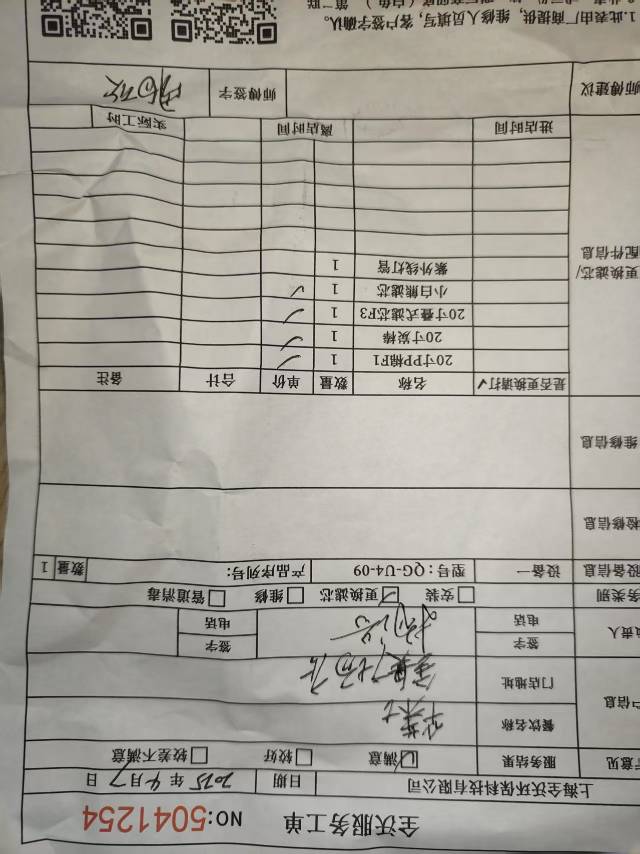 全沃服务工单 NO:5041254
上海全沃环保科技有限公司 日期 2025年4月7日
意见 服务结果 满意 较好 较差不满意
信息 餐饮名称
门店地址
负责人 签字 签字
电话 电话
务类别 安装 更换滤芯 维修 管道消毒
设备信息 设备一 型号:QG-U4-09 产品序列号: 数量 1
检修信息
维修信息
更换滤芯/配件信息 是否更换请打✓ 名称 数量 单价 合计 备注
20寸PP棉F1 1 ✓
20寸炭棒 1 ✓
20寸叠式滤芯F3 1 ✓
小白熊滤芯 1 ✓
紫外线灯管 1
进店时间 离店时间 实际工时
师傅建议 师傅签字
1.此表由厂商提供,维修人员填写,客户签字确认。